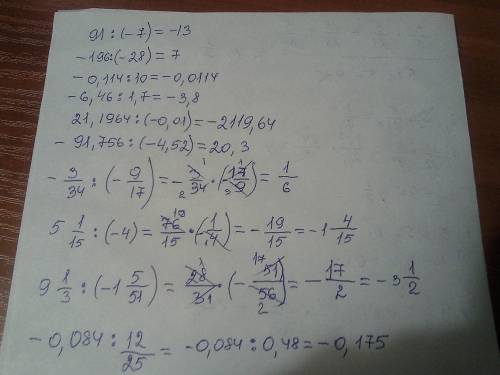 91 : (-7) = -13
-196:(-28) = 7
-0,114:10 = -0,0114
-6,46:1,7 = -3,8
21,1964:(-0,01) = -2119,64
- 91,756:(-4,52) = 20,3
- 3/34 : (- 9/17) = - 3/34 · (- 17/9) = 1/6
5 1/15 : (-4) = 76/15 · (- 1/4) = - 19/15 = -1 4/15
9 1/3 : (-1 5/51) = 28/31 · (- 51/56) = - 17/2 = -3 1/2
- 0,084 : 12/25 = -0,084 : 0,48 = -0,175